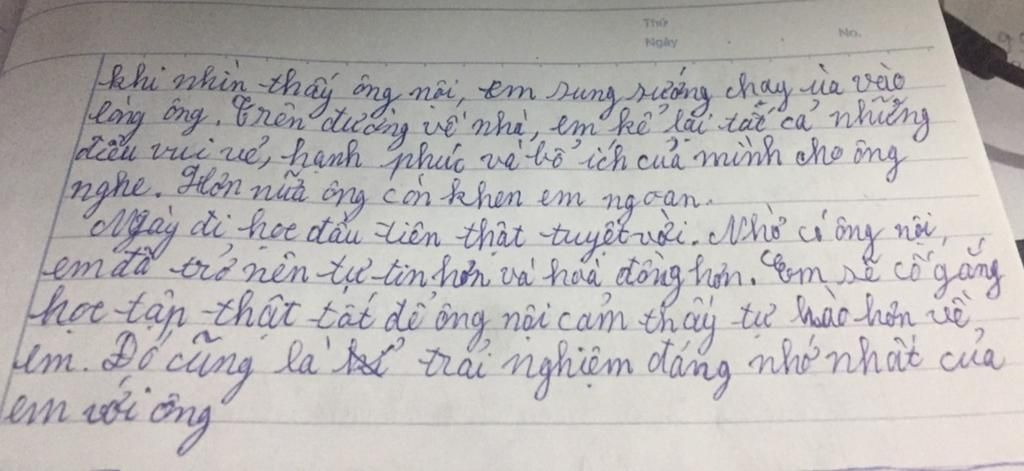 Thứ
Ngày
No.
khi nhìn thấy ông nội, em sung sướng chạy ùa vào
lòng ông. Trên đường về nhà, em kể lại tất cả những
điều vui vẻ, hạnh phúc và bổ ích của mình cho ông
nghe. Hơn nữa ông còn khen em ngoan.
Ngày đi học đầu tiên thật tuyệt vời. Nhờ có ông nội,
em đã trở nên tự tin hơn và hoà đồng hơn. Em sẽ cố gắng
học tập thật tốt để ông nội cảm thấy tự hào hơn về
em. Đó cũng là trải nghiệm đáng nhớ nhất của
em với ông